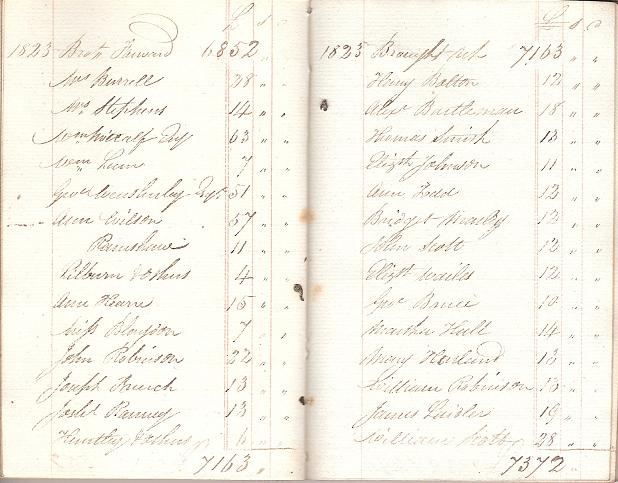 £ s d
1823 Brot Forward 6852 " "
Mrs Burrell 28 " "
Mrs Stephens 14 " "
Wm Metcalf Esq 63 " "
Wm Lum 7 " "
Geo Esqr 51 " "
Ann Wilson 57 " "
Ramshaw 11 " "
Pilburn & others 4 " "
Ann Hearn 15 " "
Miss Blagdon 7 " "
John Robinson 22 " "
Joseph 13 " "
Ramsey 13 " "
Huntley & others 6 " "
7163 "
£ s d
1823 Brought up 7163 " "
Henry Bolton 12 " "
Alexr Bartleman 18 " "
Thomas Smith 13 " "
Elizth Johnson 11 " "
Ann Todd 12 " "
Bridget 13 " "
John Scott 12 " "
Elizth 12 " "
Geo Bruce 10 " "
Martha Hall 14 " "
Mary Harland 13 " "
William Robinson 13 " "
James Laidler 19 " "
William Scott 28 " "
7372 " "